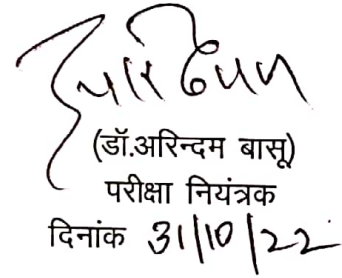 (डॉ.अरिन्दम बासू)
परीक्षा नियंत्रक
दिनांक 31/10/22